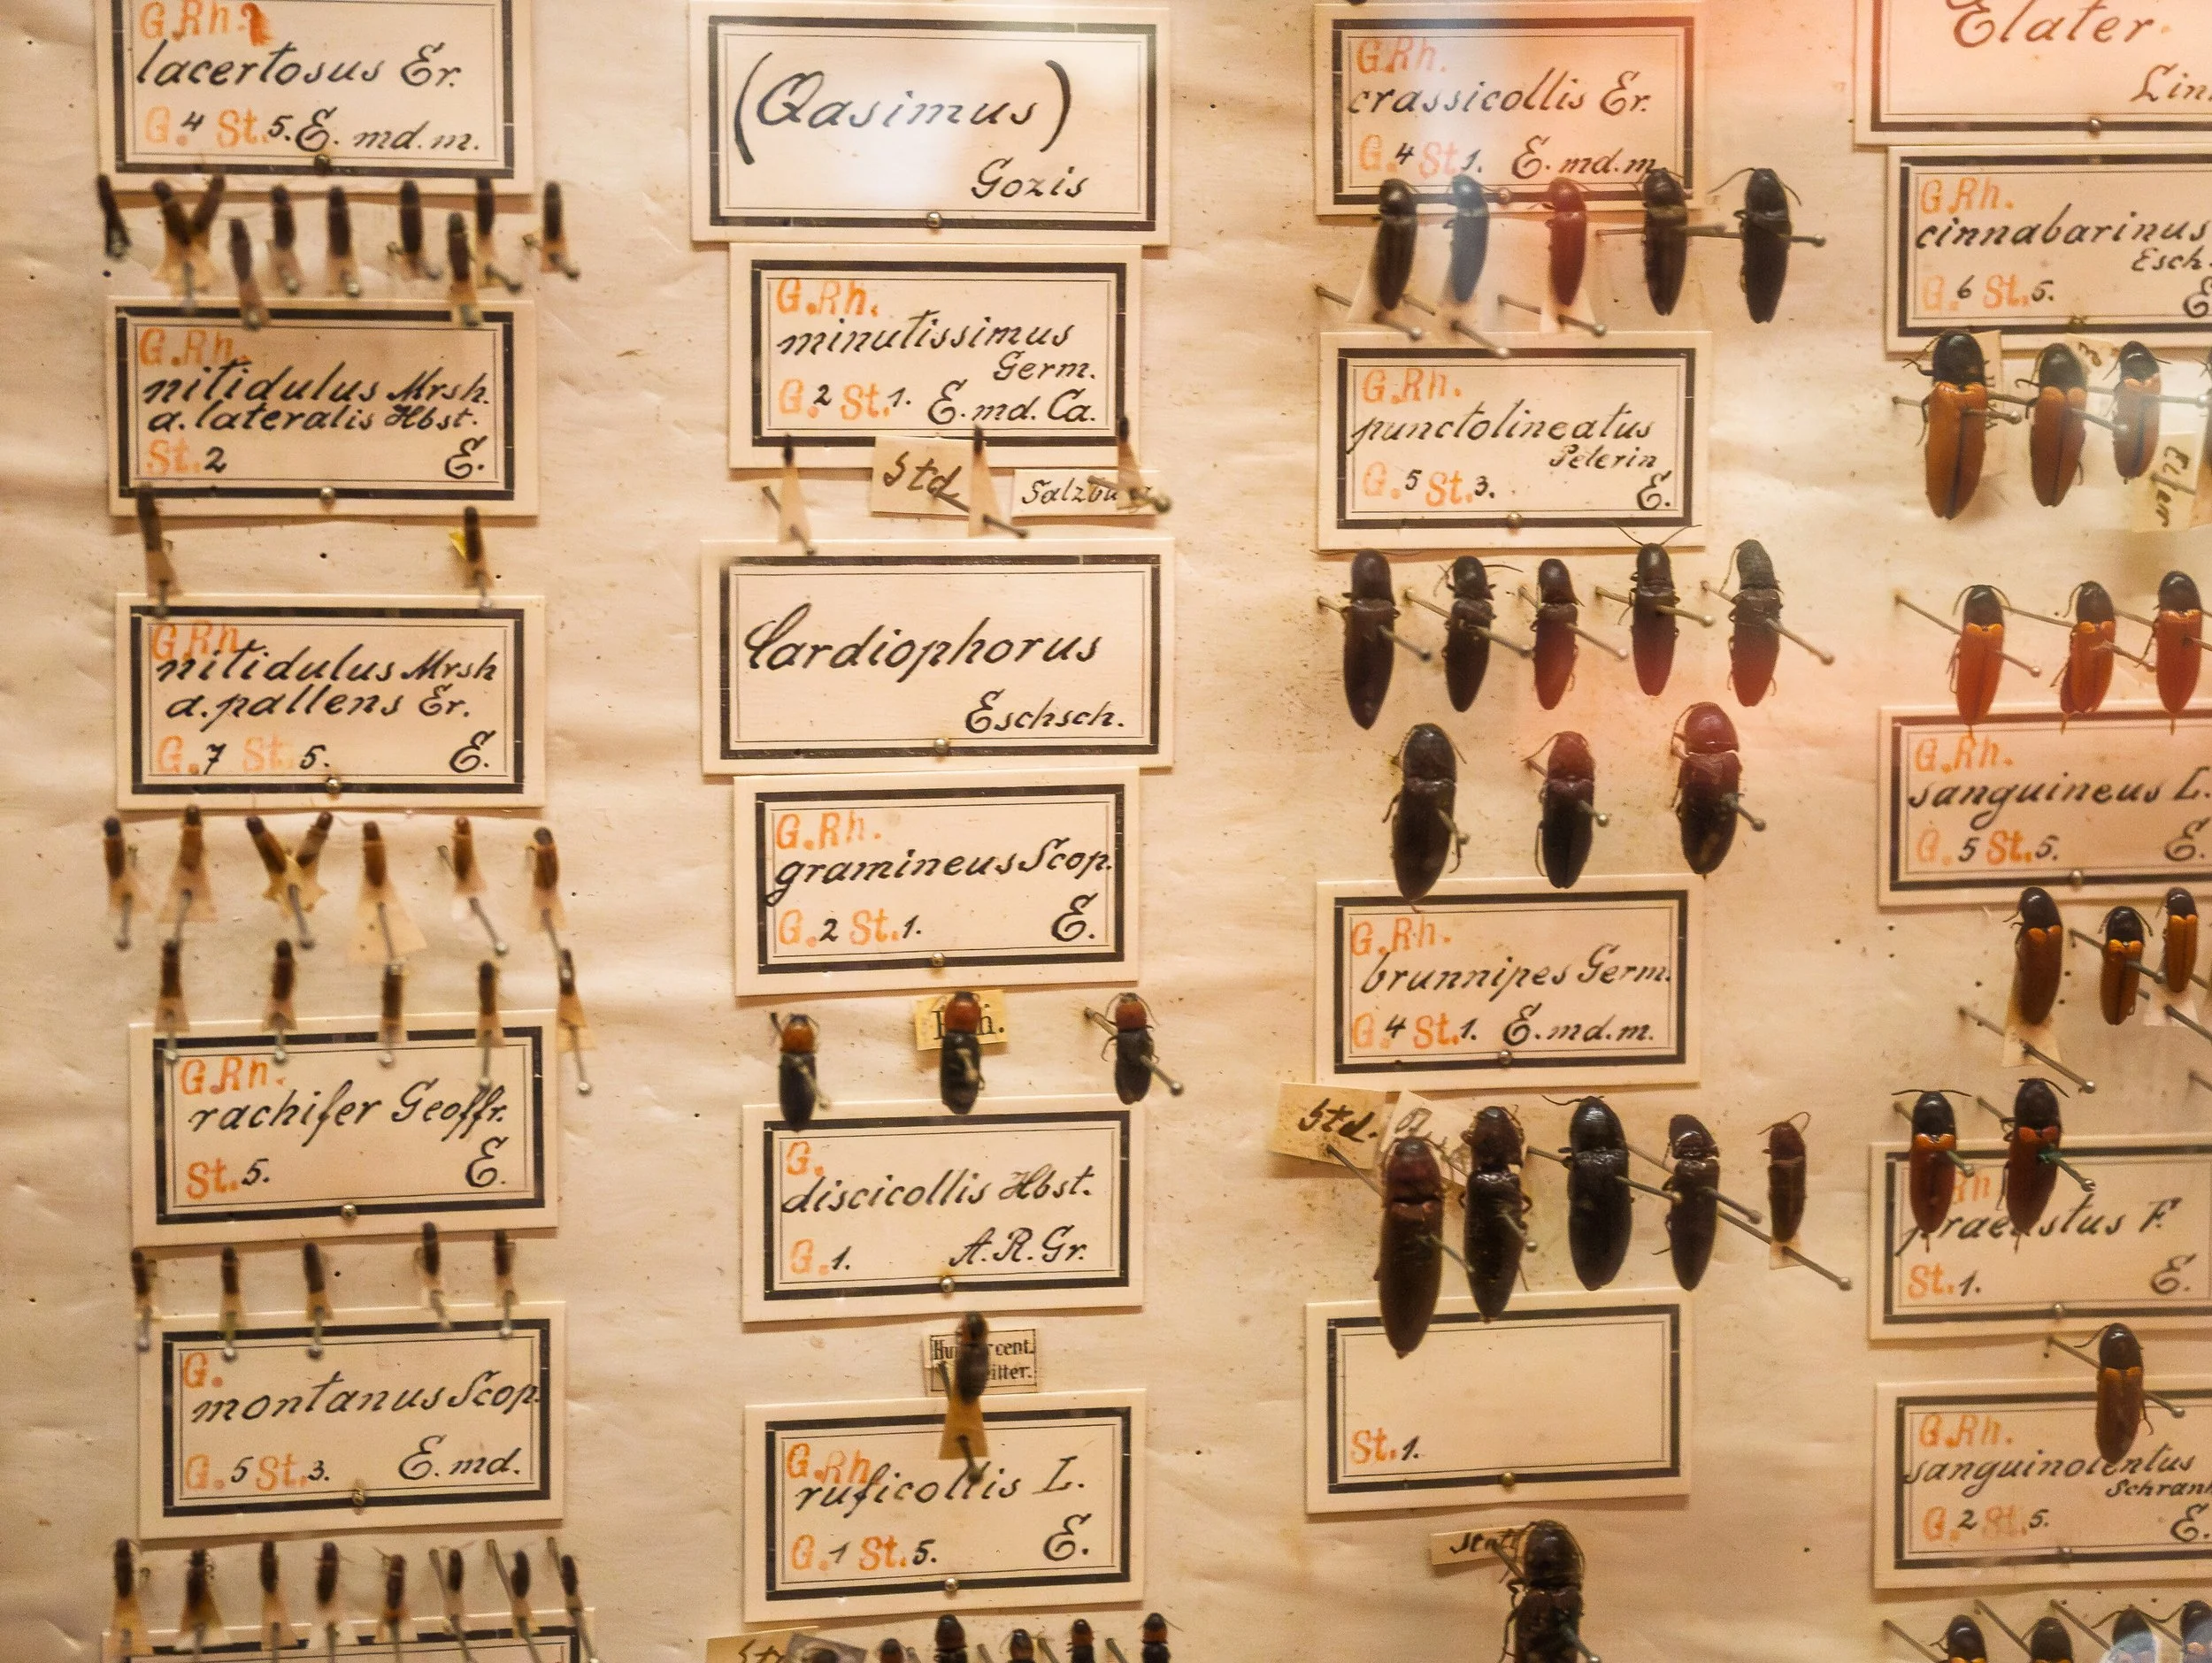 G.Rh.
lacertosus Er.
G.4 St.5. E. md. m.
G.Rh.
nitidulus Mrsh.
a. lateralis Hbst.
St.2 E.
G.Rh.
nitidulus Mrsh
a. pallens Er.
G.7 St.5. E.
G.Rh.
rachifer Geoffr.
St.5. E.
G.
montanus Scop.
G.5 St.3. E. md.
(Qasimus)
Gozis
G.Rh.
minutissimus
Germ.
G.2 St.1. E. md. Ca.
Std.
Cardiophorus
Eschsch.
G.Rh.
gramineus Scop.
G.2 St.1. E.
G.
discicollis Hbst.
G.1. A.R.Gr.
cent.
itter.
G.Rh.
ruficollis L.
G.1 St.5. E.
G.Rh.
crassicollis Er.
G.4 St.1. E. md. m.
G.Rh.
punctolineatus
Pelerin
G.5 St.3. E.
G.Rh.
brunnipes Germ.
G.4 St.1. E. md. m.
Std.
St.1.
Elater
Lin
G.Rh.
cinnabarinus
Esch.
G.6 St.5. E
G.Rh.
sanguineus L.
G.5 St.5. E.
Rh
praeustus F.
St.1. E.
G.Rh.
sanguinolentus
Schrank
G.2 St.5. E.